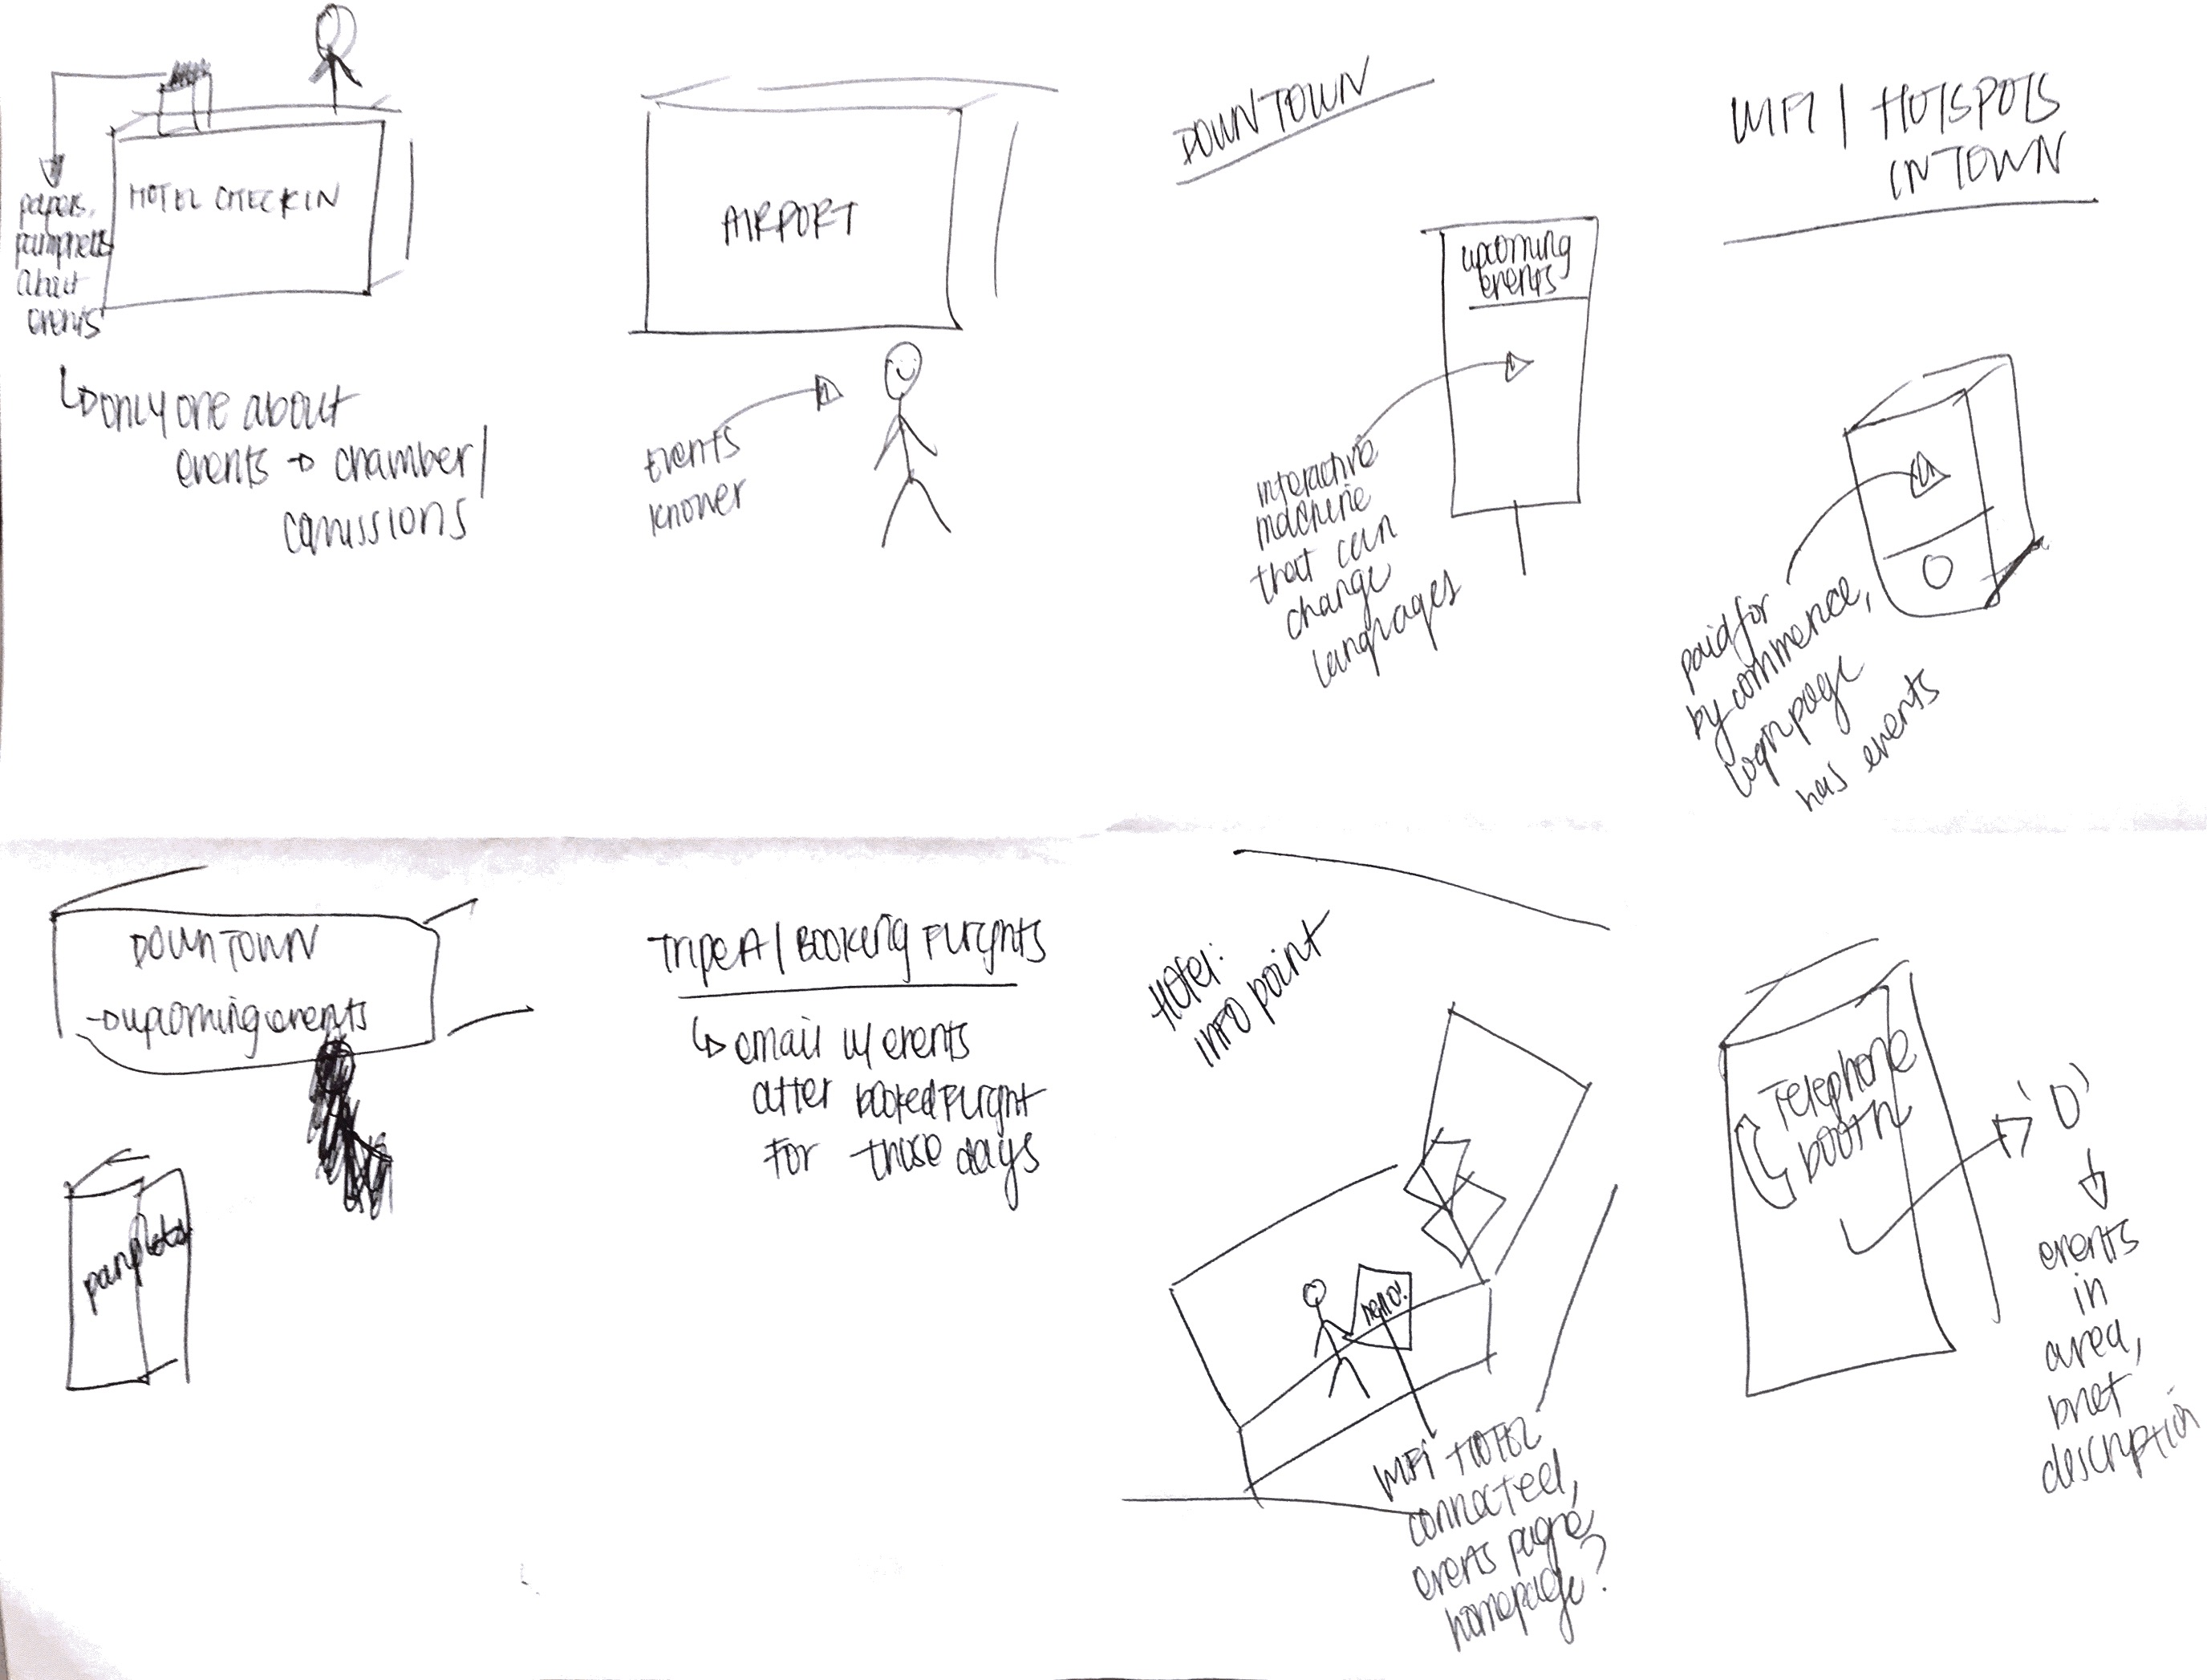 HOTEL CHECK IN
papers,
pamphlets
about
events
only one about
events → chamber/
comissions
AIRPORT
Events
knower
DOWNTOWN
upcoming
events
interactive
machine
that can
change
languages
WIFI / HOTSPOTS
IN TOWN
paid for
by commerce,
login page
has events
DOWNTOWN
→ upcoming events
pamplets
TripleA / BOOKING FLIGHTS
email w/ events
after booked flight
for those days
HOTEL:
INFO point
hello!
WIFI HOTEL
connected,
events page
homepage?
Telephone
booth
'0'
events
in
area,
brief
description